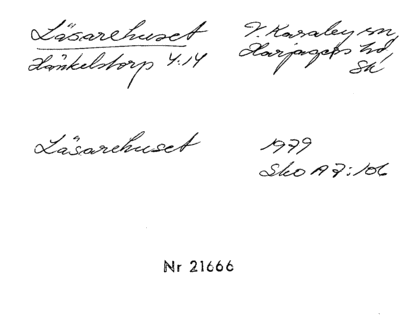 Läsarehuset
Hänkelstorp 4:14
V. Karaby sn,
Harjagers hd,
Sk
Läsarehuset
1979
Sko A 7:106
Nr 21666